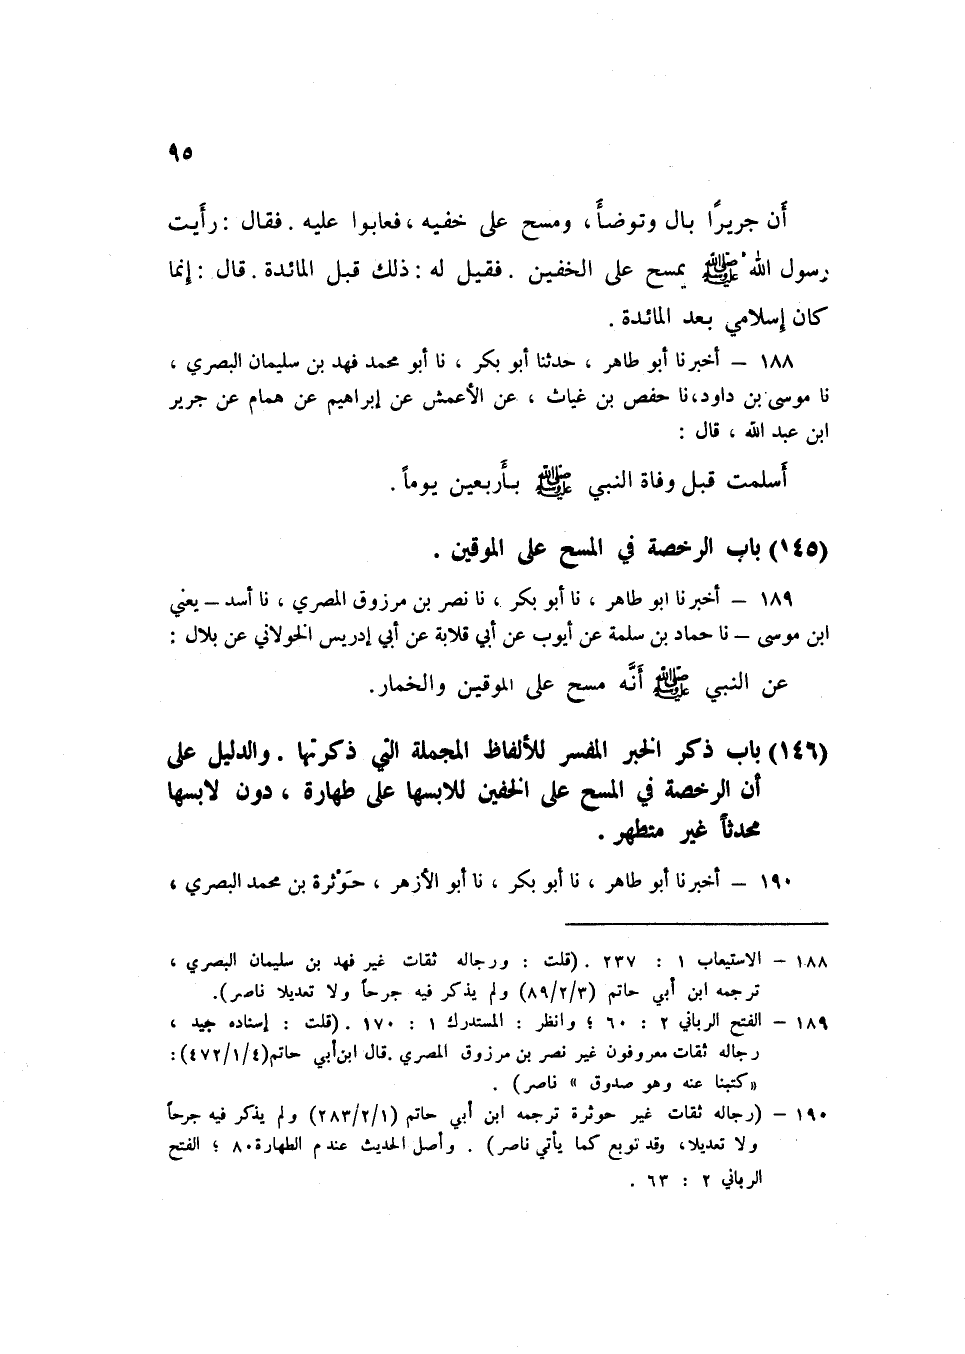 ٩٥
أَن جريرًا بال وتوضأَ ، ومسح على خفيه ، فعابوا عليه . فقال : رأَيت
رسول الله ﷺ يمسح على الخفين . فقيل له : ذلك قبل المائدة . قال : إنما
كان إسلامي بعد المائدة .
١٨٨ – أخبرنا أبو طاهر ، حدثنا أبو بكر ، نا أبو محمد فهد بن سليمان البصري ،
نا موسى بن داود، نا حفص بن غياث ، عن الأعمش عن إبراهيم عن همام عن جرير
ابن عبد الله ، قال :
أَسلمت قبل وفاة النبي ﷺ بأَربعين يوماً .
(١٤٥) باب الرخصة في المسح على الموقين .
١٨٩ – أخبرنا ابو طاهر ، نا أبو بكر ، نا نصر بن مرزوق المصري ، نا أسد – يعني
ابن موسى – نا حماد بن سلمة عن أيوب عن أبي قلابة عن أبي إدريس الخولاني عن بلال :
عن النبي ﷺ أَنَّه مسح على الموقين والخمار .
(١٤٦) باب ذكر الخبر المفسر للألفاظ المجملة التي ذكرتها . والدليل على
أن الرخصة في المسح على الخفين للابسها على طهارة ، دون لابسها
محدثاً غير متطهر .
١٩٠ – أخبرنا أبو طاهر ، نا أبو بكر ، نا أبو الأزهر ، حَوْثرة بن محمد البصري ،
١٨٨ – الاستيعاب ١ : ٢٣٧ . (قلت : ورجاله ثقات غير فهد بن سليمان البصري ،
ترجمه ابن أبي حاتم (٨٩/٢/٣) ولم يذكر فيه جرحاً ولا تعديلا ناصر).
١٨٩ – الفتح الرباني ٢ : ٦٠ ؛ وانظر : المستدرك ١ : ١٧٠ . (قلت : إسناده جيد ،
رجاله ثقات معروفون غير نصر بن مرزوق المصري . قال ابن أبي حاتم (٤٧٢/١/٤) :
« كتبنا عنه وهو صدوق » ناصر) .
١٩٠ – (رجاله ثقات غير حوثرة ترجمه ابن أبي حاتم (٢٨٣/٢/١) ولم يذكر فيه جرحاً
ولا تعديلا، وقد توبع كما يأتي ناصر) . وأصل الحديث عند م الطهارة ٨٠ ؛ الفتح
الرباني ٢ : ٦٣ .